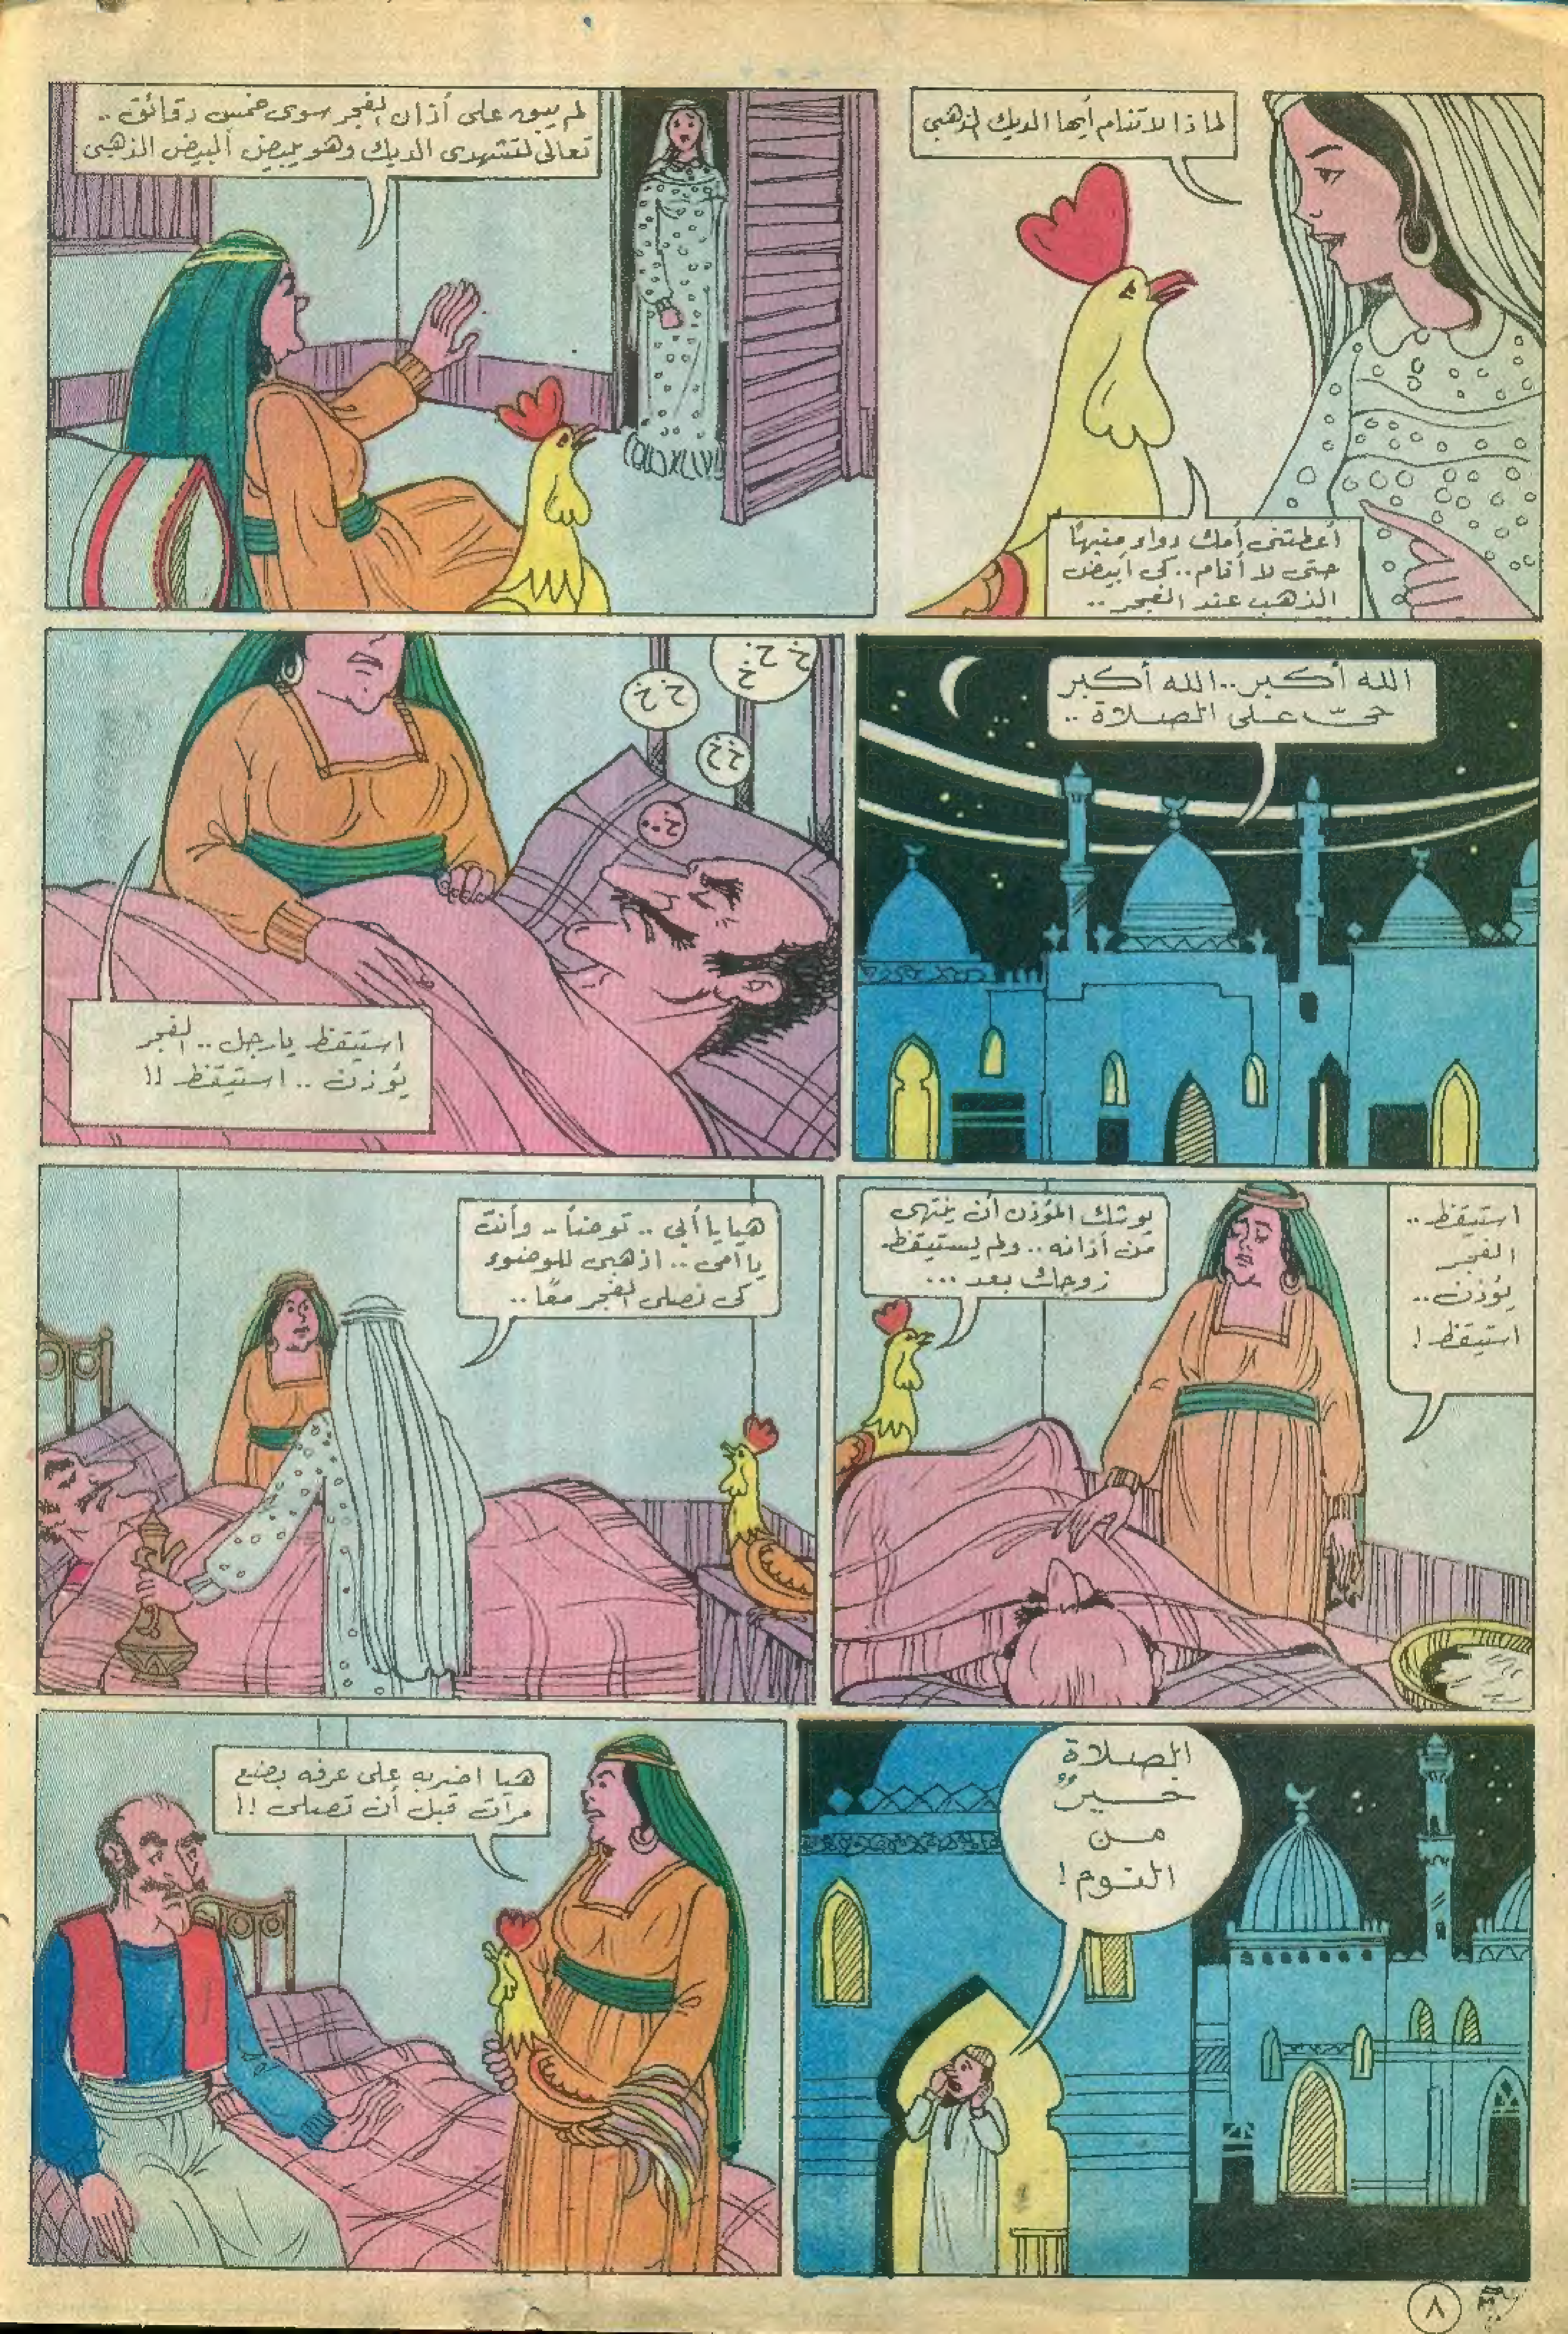 لماذا لا تنام أيها الديك الذهبى
أعطتنى أمك دواء منبهًا
حتى لا أنام.. كى أبيض
الذهب عند الفجر..
لم يبق على أذان الفجر سوى خمس دقائق..
تعالى لتشهدى الديك وهو يبيض البيض الذهبى
الله أكبر.. الله أكبر
حىّ على الصلاة..
خ خ
خ
خ خ
خ خ
خ..
استيقظ يا رجل.. الفجر
يؤذن.. استيقظ !!
استيقظ..
الفجر
يؤذن..
استيقظ !
يوشك المؤذن أن ينتهى
من أذانه.. ولم يستيقظ
زوجك بعد...
هيا يا أبى.. توضأ.. وأنت
يا أمى.. اذهبى للوضوء
كى نصلى الفجر معًا..
الصلاة
خيرٌ
من
النوم !
هيا اضربه على عرفه بضع
مرات قبل أن تصلى !!
٨